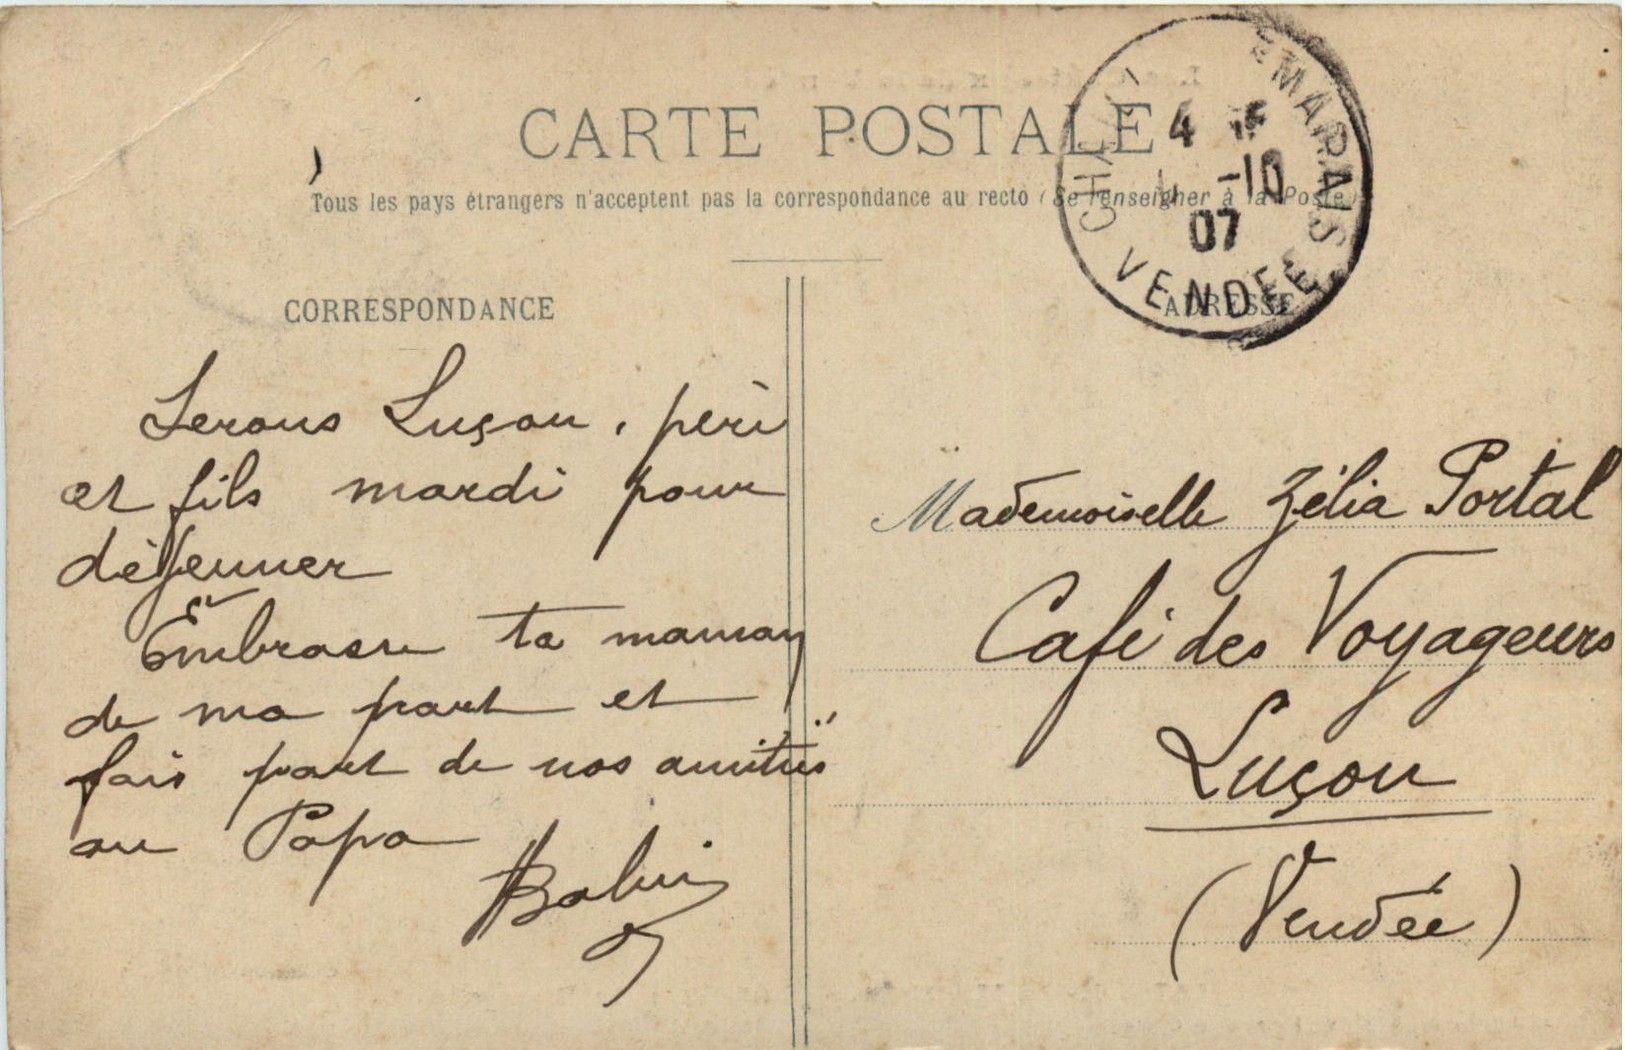 CARTE POSTALE
Tous les pays étrangers n'acceptent pas la correspondance au recto (Se renseigner à la Poste)
MARAIS
4
-10
07
VENDÉE
CORRESPONDANCE
ADRESSE
Serons Luçon, père
et fils mardi pour
déjeuner
Embrasse ta maman
de ma part et
fais part de nos amitiés
au Papa
Mademoiselle Zélia Portal
Café des Voyageurs
Luçon
(Vendée)